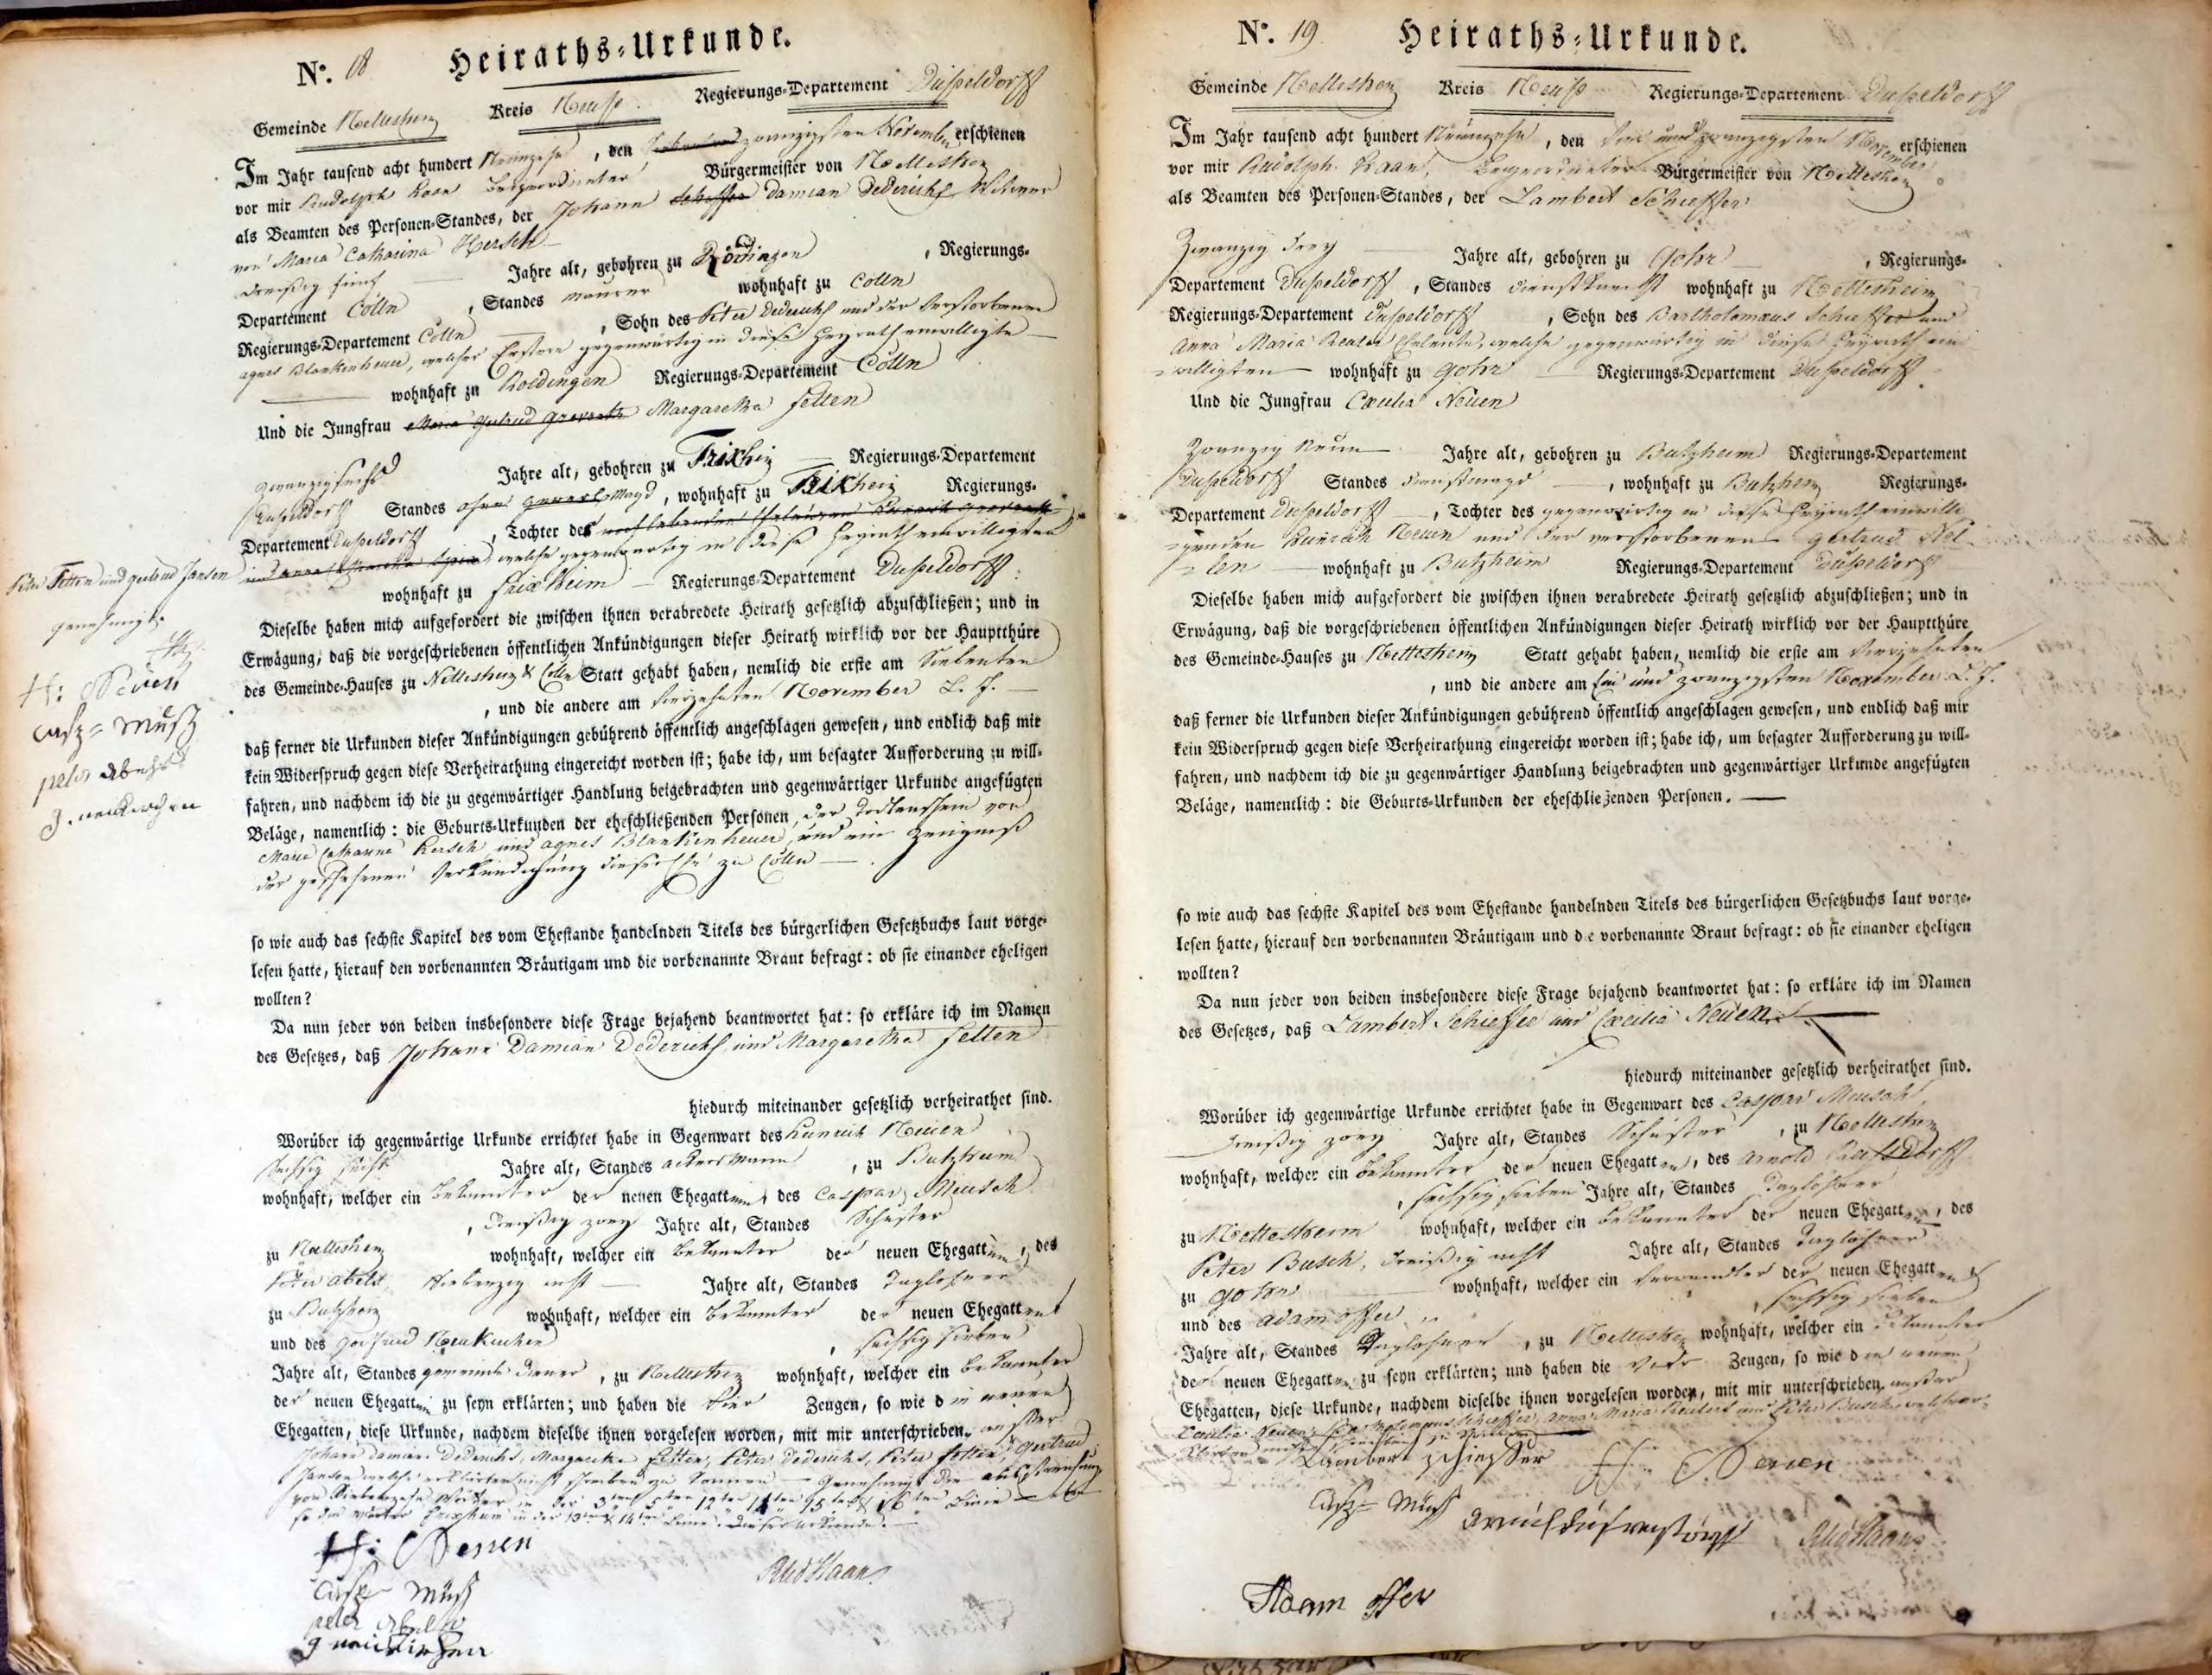 No. 18 Heiraths-Urkunde.
Gemeinde Nettesheim Kreis Neuß Regierungs-Departement Düsseldorff
Im Jahr tausend acht hundert Neunzehn, den zwanzigsten November erschienen
vor mir Rudolph Beigeordneter Bürgermeister von Nettesheim
als Beamten des Personen-Standes, der Johann Damian Dederichs Wittwer
von Maria Catharina Kersch
dreißig fünf Jahre alt, gebohren zu Rödingen, Regierungs-
Departement Cölln, Standes Maurer wohnhaft zu Cölln
Regierungs-Departement Cölln, Sohn des Peter Dederichs und der verstorbenen
Agnes Blankenheuer, welcher Erstere gegenwärtig in diese Heyrath einwilligte
wohnhaft zu Roedingen Regierungs-Departement Cölln
Und die Jungfrau Margaretha Fetten
zwanzig sechs Jahre alt, gebohren zu Frixheim Regierungs-Departement
Düsseldorff Standes ohne Magd, wohnhaft zu Frixheim Regierungs-
Departement Düsseldorff, Tochter des
Peter Fetten und Gertrud Jansen welche gegenwärtig in diese Heyrath einwilligten
genehmigt.
H: Neuen
Casp= Müsch
peter Abels
g. neukirchen
wohnhaft zu Frixheim Regierungs-Departement Düsseldorff.
Dieselbe haben mich aufgefordert die zwischen ihnen verabredete Heirath gesetzlich abzuschließen; und in
Erwägung, daß die vorgeschriebenen öffentlichen Ankündigungen dieser Heirath wirklich vor der Hauptthüre
des Gemeinde-Hauses zu Nettesheim & Cölln Statt gehabt haben, nemlich die erste am Siebenten
, und die andere am vierzehnten November L. J.
daß ferner die Urkunden dieser Ankündigungen gebührend öffentlich angeschlagen gewesen, und endlich daß mir
kein Widerspruch gegen diese Verheirathung eingereicht worden ist; habe ich, um besagter Aufforderung zu will-
fahren, und nachdem ich die zu gegenwärtiger Handlung beigebrachten und gegenwärtiger Urkunde angefügten
Beläge, namentlich: die Geburts-Urkunden der eheschließenden Personen, der Todtenschein von
Maria Catharina Kersch und Agnes Blankenheuer, und ein Zeugniß
der geschehenen Verkündigung dieser Ehe zu Cölln
so wie auch das sechste Kapitel des vom Ehestande handelnden Titels des bürgerlichen Gesetzbuchs laut vorge-
lesen hatte, hierauf den vorbenannten Bräutigam und die vorbenannte Braut befragt: ob sie einander eheligen
wollten?
Da nun jeder von beiden insbesondere diese Frage bejahend beantwortet hat: so erkläre ich im Namen
des Gesetzes, daß Johann Damian Dederichs und Margaretha Fetten
hiedurch miteinander gesetzlich verheirathet sind.
Worüber ich gegenwärtige Urkunde errichtet habe in Gegenwart des Neuen
Sechzig sechs Jahre alt, Standes Ackersmann, zu Butzheim
wohnhaft, welcher ein Bekannter der neuen Ehegatten, des Caspar Meusch
, dreißig zwey Jahre alt, Standes Schuster
zu Nettesheim wohnhaft, welcher ein Bekannter der neuen Ehegatten, des
Peter Abels, siebenzig acht Jahre alt, Standes Taglöhner
zu Butzheim wohnhaft, welcher ein Bekannter der neuen Ehegatten
und des Neukirchen, sechzig sieben
Jahre alt, Standes gemeinde Diener, zu Nettesheim wohnhaft, welcher ein Bekannter
der neuen Ehegatten zu seyn erklärten; und haben die vier Zeugen, so wie die neuen
Ehegatten, diese Urkunde, nachdem dieselbe ihnen vorgelesen worden, mit mir unterschrieben, außer
Johann Damian Dederichs, Margaretha Fetten, Peter Dederichs, Peter Fetten, & Gertrud
Jansen welche erklärten nicht schreiben zu können
H: Neuen
Casp= Müsch
peter Abels
g neukirchen
No. 19 Heiraths-Urkunde.
Gemeinde Nettesheim Kreis Neuß Regierungs-Departement Düsseldorff
Im Jahr tausend acht hundert Neunzehn, den und zwanzigsten November erschienen
vor mir Rudolph Beigeordneter Bürgermeister von Nettesheim
als Beamten des Personen-Standes, der Lambert Schieffer
Zwanzig drey Jahre alt, gebohren zu Gohr, Regierungs-
Departement Düsseldorff, Standes Dienstknecht wohnhaft zu Nettesheim
Regierungs-Departement Düsseldorff, Sohn des Bartholomaeus Schieffer und
Anna Maria Eheleute, welche gegenwärtig in diese Heyrath ein-
willigten wohnhaft zu Gohr Regierungs-Departement Düsseldorff.
Und die Jungfrau Caecilia Neuen
Zwanzig Neun Jahre alt, gebohren zu Butzheim Regierungs-Departement
Düsseldorff Standes Dienstmagd, wohnhaft zu Butzheim Regierungs-
Departement Düsseldorff, Tochter des gegenwärtig in diese Heyrath einwilli-
genden Neuen und der verstorbenen Gertrud
wohnhaft zu Butzheim Regierungs-Departement Düsseldorff
Dieselbe haben mich aufgefordert die zwischen ihnen verabredete Heirath gesetzlich abzuschließen; und in
Erwägung, daß die vorgeschriebenen öffentlichen Ankündigungen dieser Heirath wirklich vor der Hauptthüre
des Gemeinde-Hauses zu Nettesheim Statt gehabt haben, nemlich die erste am vierzehnten
, und die andere am ein und zwanzigsten November L. J.
daß ferner die Urkunden dieser Ankündigungen gebührend öffentlich angeschlagen gewesen, und endlich daß mir
kein Widerspruch gegen diese Verheirathung eingereicht worden ist; habe ich, um besagter Aufforderung zu will-
fahren, und nachdem ich die zu gegenwärtiger Handlung beigebrachten und gegenwärtiger Urkunde angefügten
Beläge, namentlich: die Geburts-Urkunden der eheschließenden Personen.
so wie auch das sechste Kapitel des vom Ehestande handelnden Titels des bürgerlichen Gesetzbuchs laut vorge-
lesen hatte, hierauf den vorbenannten Bräutigam und die vorbenannte Braut befragt: ob sie einander eheligen
wollten?
Da nun jeder von beiden insbesondere diese Frage bejahend beantwortet hat: so erkläre ich im Namen
des Gesetzes, daß Lambert Schieffer und Caecilia Neuen
hiedurch miteinander gesetzlich verheirathet sind.
Worüber ich gegenwärtige Urkunde errichtet habe in Gegenwart des Caspar Meusch,
dreißig zwey Jahre alt, Standes Schuster, zu Nettesheim
wohnhaft, welcher ein Bekannter der neuen Ehegatten, des Arnold
, sechzig sieben Jahre alt, Standes Taglöhner
zu Nettesheim wohnhaft, welcher ein Bekannter der neuen Ehegatten, des
Peter Busch, dreißig acht Jahre alt, Standes Taglöhner
zu Gohr wohnhaft, welcher ein Verwandter der neuen Ehegatten
und des Adam Offer, sechzig sieben
Jahre alt, Standes Taglöhner, zu Nettesheim wohnhaft, welcher ein Bekannter
der neuen Ehegatten zu seyn erklärten; und haben die vier Zeugen, so wie die neuen
Ehegatten, diese Urkunde, nachdem dieselbe ihnen vorgelesen worden, mit mir unterschrieben, außer
Caecilia Neuen, Bartholomaeus Schieffer, Anna Maria und Peter Busch, welche er-
klärten nicht schreiben zu können
Lambert schieffer H: Neuen
Casp= Müsch
Adam offer